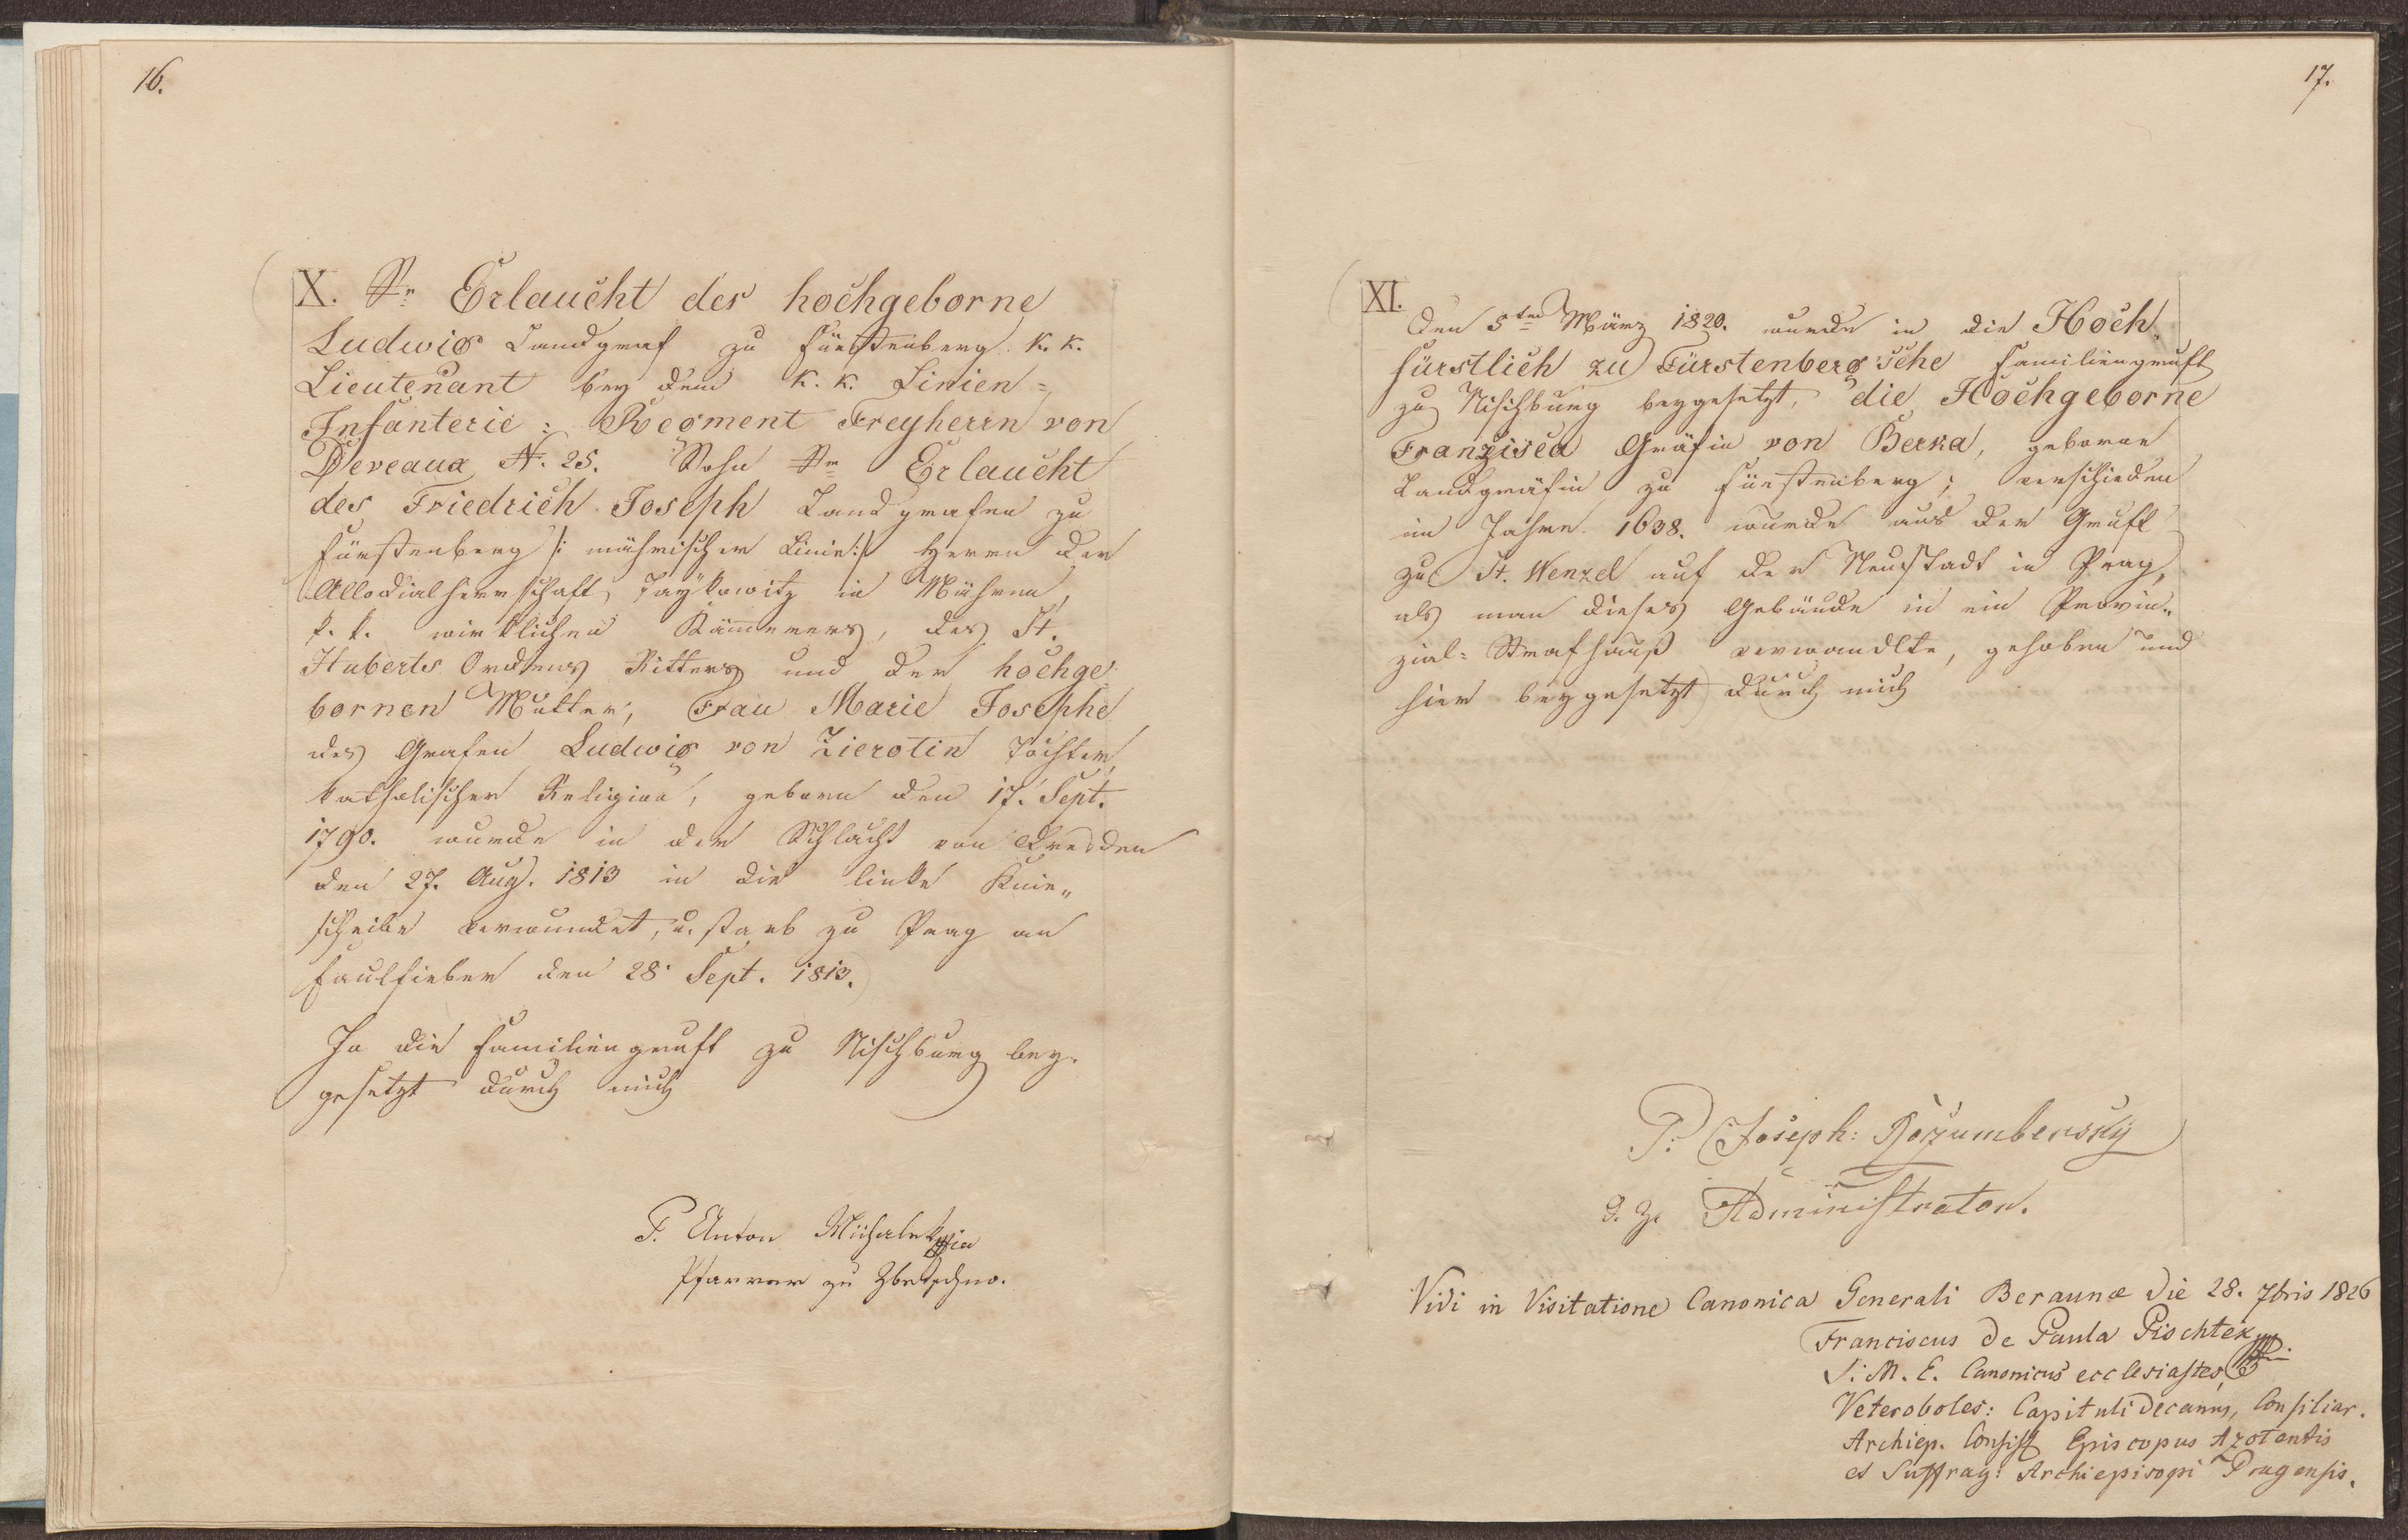 16.
X. Sr. Erlaucht der hochgeborne
Ludwig Landgraf zu Fürstenberg K. K.
Lieutenant bey dem K. K. Linien=
Infanterie: Regment Freyherrn von
Deveaux N. 25. Sohn Sr. Erlaucht
des Friedrich Joseph Landgrafen zu
Fürstenberg /: mährischer Linie :/ Herrn der
Allodialherrschaft Taykowitz in Mähren,
k. k. wirklichen Kämmerers, des St.
Huberts Ordens Ritters und der hochge
bornen Mutter, Frau Marie Josephe
des Grafen Ludwig von Zierotin Tochter,
katholischer Religion, geborn den 17. Sept.
1790. wurde in der Schlacht von Dresden
den 27. Aug. 1813 in die linke Knie„
scheibe verwundet, u. starb zu Prag an
Faulfieber den 28. Sept. 1813.
In die Familiengruft zu Nischburg bey-
gesetzt durch mich
P. Anton
Pfarrer zu Zbetschno.
17.
XI.
Den 5ten März 1820. wurde in die Hoch
fürstlich zu Fürstenberg'sche Familiengruft
zu Nischburg beygesetzt, die Hochgeborne
Franzisca Gräfin von Berka, geborne
Landgräfin zu Fürstenberg; verschieden
im Jahre 1638. wurde aus der Gruft
zu St. Wenzel auf der Neustadt in Prag,
als man dieses Gebäude in ein Provin„
zial= Strafhauß verwandlte, gehoben und
hier beygesetzt durch mich
P: Joseph: Rozumbersky
d. Z. Administrator.
Vidi in Visitatione Canonica Generali Beraunæ die 28. 7bris 1826
Franciscus de Paula Pischtek
S: M. E. Canonicus ecclesiastes,
Veteroboles: Capituli Decanus, Consiliar.
Archiep. Consist Episcopus Azotensis
et Suffrag: Archiepiscopi Pragensis.